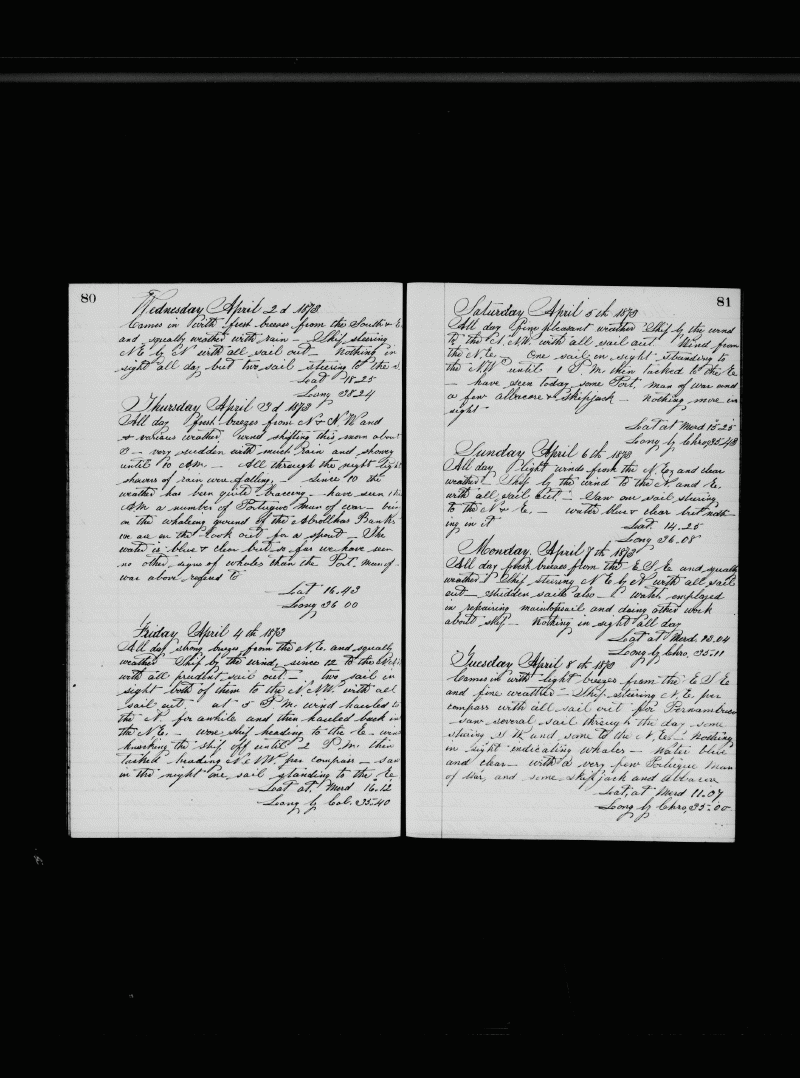 80
Wednesday April 2d 1873
Comes in with fresh breezes from the South & E.
and squally weather with rain — Ship steering
N E by N with all sail out — Nothing in
sight all day but two sail steering to the
Lat 18.25
Long 38.24
Thursday April 3d 1873
All day fresh breezes from N & N.W and
& various weather, wind shifting this morn about
8 — very sudden with much rain and showery
until 10 AM. — All through the night light
showers of rain were falling. — Since 10 the
weather has been quite bracing — have seen this
AM a number of Portuguee Man of war — being
on the whaleing ground of the Abrollhas Banks
we are on the look out for a spout — The
water is blue & clear but so far we have seen
no other signs of whales than the Port. man of
war above refered to
Lat 16.43
Long 36 00
Friday April 4th 1873
All day strong breezes from the N.E. and squally
weather Ship by the wind, since 12 to the
with all prudent sail out. — two sail in
sight both of them to the N.NW. with all
sail out at 5 P.M. wind hauled to
the N. for awhile and then hauled back in
the N.E. — wore ship heading to the E — wind
knocking the ship off until 2 P.M. then
tacked heading N.E NW. per compass — saw
in the night one sail standing to the E
Lat at. Merd 16.12
Long by Col. 35.40
81
Saturday April 5th 1873
All day fine pleasant weather Ship by the wind
to the N.NW. with all sail out. Wind from
the N.E. — One sail in sight standing to
the N.W until 1 P.M then tacked to the E
— have seen today some Port. man of war and
a few albacore & Skipjack — Nothing more in
sight
Lat at Merd 15.25
Long by Chro, 35.43
Sunday April 6th 1873
All day light winds from the N.E, and clear
weather. Ship by the wind to the N. and E.
with all sail out. — Saw one sail steering
to the N & E. — water blue & clear but noth-
ing in it
Lat. 14.25
Long 36.08
Monday. April 7th 1873
All day fresh breezes from the E S E and squally
weather. Ship steering N E by N with all sail
out — studden sails also — watch employed
in repairing maintopsail and doing other work
about ship — Nothing in sight all day
Lat at Merd. 13.04
Long by Chro, 35.11
Tuesday April 8th 1873
Comes in with light breezes from the E S E
and fine weather — Ship steering N.E. per
compass with all sail out for Pernambuco
— saw several sail through the day some
stearing S W and some to the N.E. — Nothing
in sight endicating whales — Water blue
and clear — with a very few Portugue Man
of War, and some skipjack and Albacore
Lat, at Merd 11.07
Long by Chro, 35.00